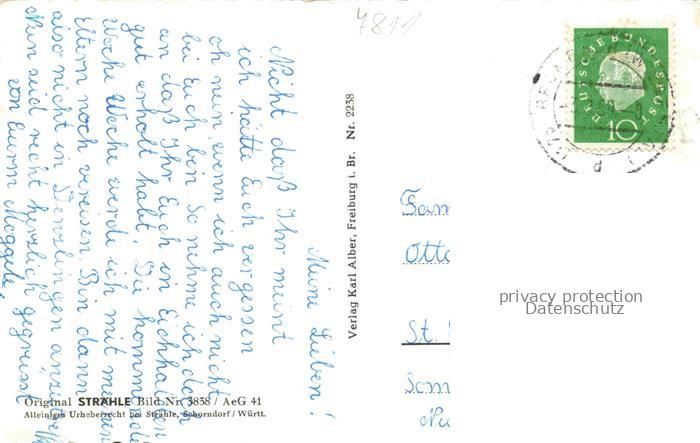 7811
Meine Lieben!
Nicht daß Ihr meint
ich hätte Euch vergessen
oh nein, wenn ich auch nicht
bei Euch bin. So nehme ich doch
an daß Ihr Euch in Eichhalden
gut erholt habt. Die kommende
Woche werde ich mit meinen
Eltern noch verreisen. Bin dann
also nicht in Denzlingen
Nun seid recht herzlich gegrüsst
von Eurem
Original STRÄHLE Bild Nr. 3838 / AeG 41
Alleiniges Urheberrecht bei Strähle, Schorndorf / Württ.
Verlag Karl Alber, Freiburg i. Br. Nr. 2238
DEUTSCHE BUNDESPOST
10
Fam
Otto
St.
privacy protection
Datenschutz